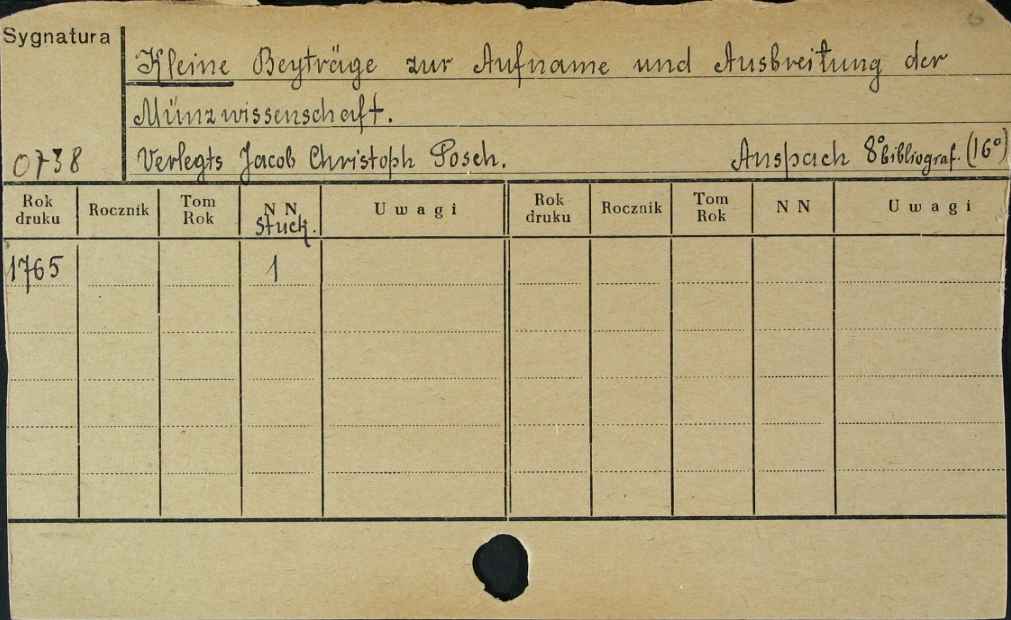 Sygnatura
Kleine Beyträge zur Aufname und Ausbreitung der
Münzwissenschaft.
0738 Verlegts Jacob Christoph Posch. Anspach 8° bibliograf. (16°)
Rok druku Rocznik Tom Rok N N Stuck. Uwagi Rok druku Rocznik Tom Rok N N Uwagi
1765 1